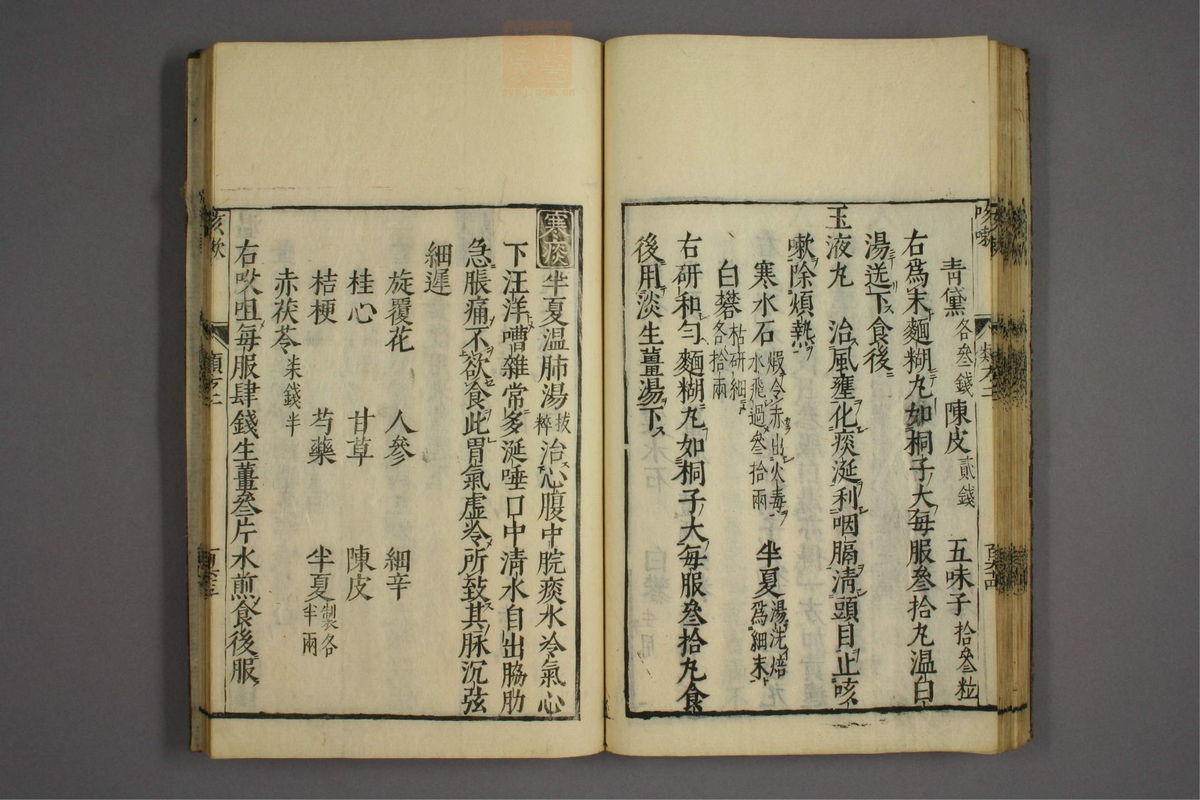 咳嗽
青黛各叁錢 陳皮貳錢 五味子拾叁粒
右爲末麵糊丸如桐子大每服叁拾丸溫白
湯送下食後
玉液丸 治風壅化痰涎利咽膈淸頭目止咳
嗽除煩熱
寒水石煆令赤出火毒水飛過叁拾兩 半夏湯洗焙爲細末
白礬枯研細各拾兩
右研和勻麵糊丸如桐子大每服叁拾丸食
後用淡生薑湯下
寒痰 半夏溫肺湯拔粹 治心腹中脘痰水冷氣心
下汪洋嘈雜常多涎唾口中清水自出脇肋
急脹痛不欲食此胃氣虛冷所致其脉沉弦
細遲
旋覆花 人參 細辛
桂心 甘草 陳皮
桔梗 芍藥 半夏製各半兩
赤茯苓柒錢半
右㕮咀每服肆錢生薑叁片水煎食後服
咳嗽